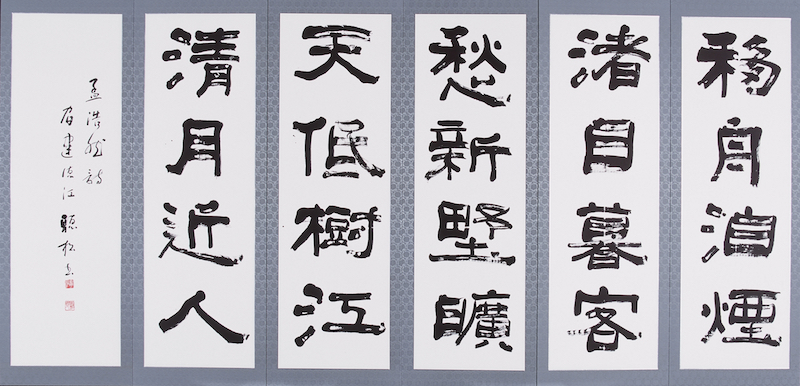 移舟泊煙
渚日暮客
愁新野曠
天低樹江
清月近人
孟浩然詩
宿建德江 聽松